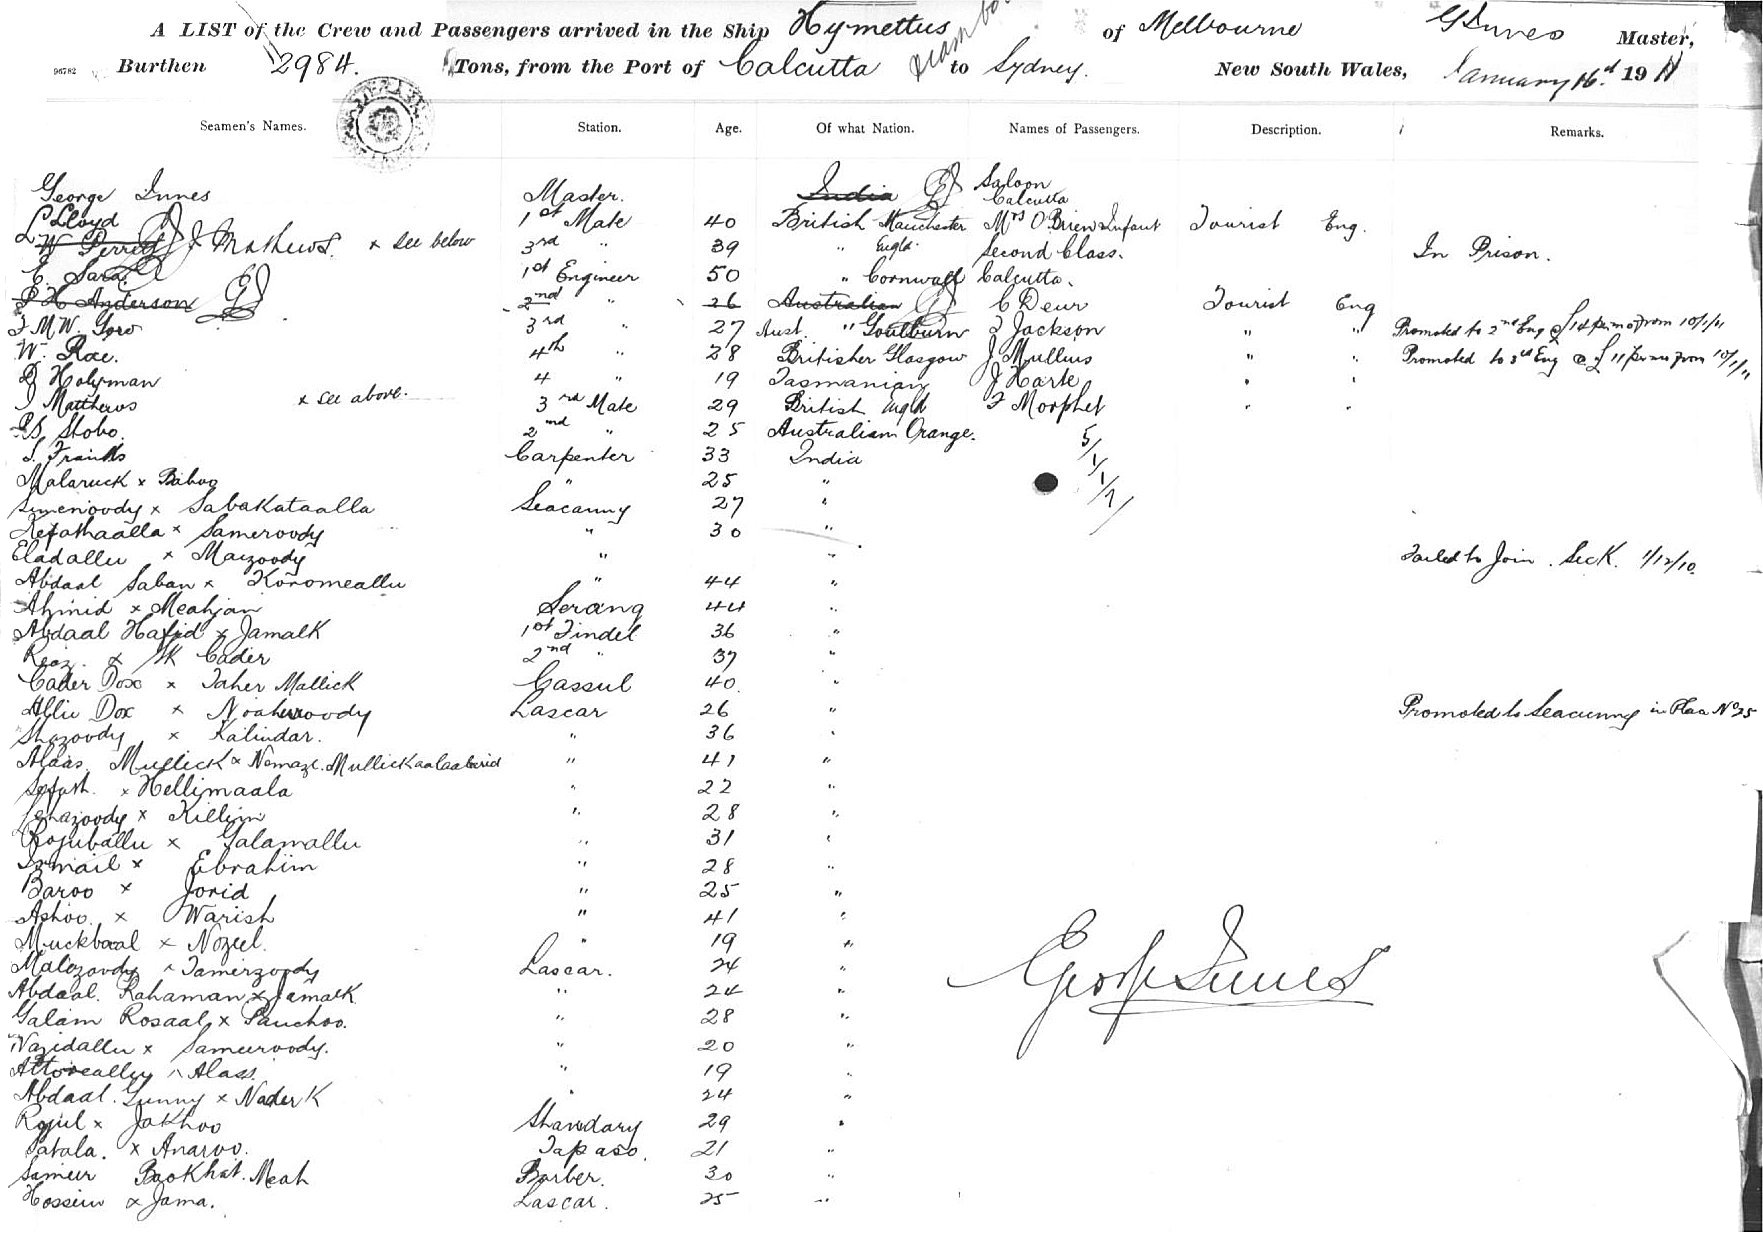 A LIST of the Crew and Passengers arrived in the Ship Hymettus of Melbourne G Innes Master,
96782 Burthen 2984. Tons, from the Port of Calcutta to Sydney. New South Wales, January 16 1911
Seamen's Names. Station. Age. Of what Nation. Names of Passengers. Description. Remarks.
George Innes Master. India Saloon
Calcutta
L Lloyd 1st Mate 40 British Manchester Mrs O'Brien & Infant Tourist Eng.
W Perrett J Mathews. x see below 3rd " 39 " Engld. Second Class. In Prison.
E. Sara 1st Engineer 50 " Cornwall Calcutta.
P H Anderson 2nd " 26 Australian C Deur Tourist Eng
F M W. Gore 3rd " 27 Aust. " Goulburn F Jackson " " Promoted to 2nd Eng @ £14 per mo from 10/1/11
W. Rae. 4th " 28 Britisher Glasgow J Mullins " " Promoted to 3rd Eng @ £11 per mo from 10/1/11
Holyman 4 " 19 Tasmanian J Harte " "
J Matthews x see above. 3rd Mate 29 British Engld F Morphet " "
Stobo. 2nd " 25 Australian Orange.
S. Franks Carpenter 33 India
Malaruck x Baboo " 25 "
x Sabakataalla Seacunny 27 "
Kefathaalla x Sameroody " 30 "
Eladallu x Maizoody " " Failed to Join. Sick. 1/12/10.
Abdaal Saban x Koromeallu " 44 "
Ahmid x Meahjan Serang 44 "
Abdaal Hafid x JamalK 1st Tindel 36 "
Reaz. x SK Cader 2nd " 37 "
Cader Dox x Taher Mallick Cassul 40. "
Allu Dox x Noahuroody Lascar 26 " Promoted to Seacunny in Place No 25
Shazoody x Kalindar. " 36 "
Alaas. Mullick x Nemaze. " 41 "
x Hellimaala " 22 "
x Killim " 28 "
Rojuballu x Galamallu " 31 "
Ismail x Ebrahim " 28 "
Baroo x Jorid " 25 "
Ashoo. x Warish " 41 "
Muckbaal x Nozeel. " 19 "
Malozoody x Tamerzoody Lascar. 24 "
Abdaal. Rahaman x JamalK " 24 "
Galam Rosaal x Panchoo. " 28 "
Nazidallu x Sameeroody. " 20 "
x Alass. " 19 "
Abdaal. Gunny x Nader K " 24 "
Rojul x Jakhoo Bhandary 29 "
Patala. x Anaroo. Topaso. 21 "
Sameer Baokhat. Meah Barber. 30 "
Hossein x Jama. Lascar. 25 "
5/1/1/7/
George Innes